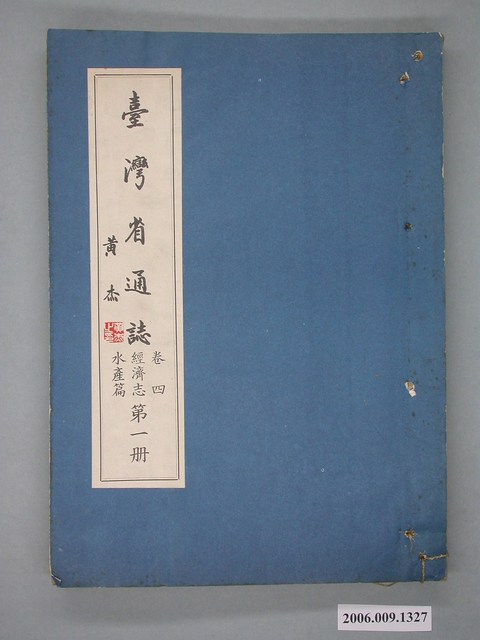 臺灣省通誌
卷四
經濟志 第一册
水產篇
黃杰
2006.009.1327